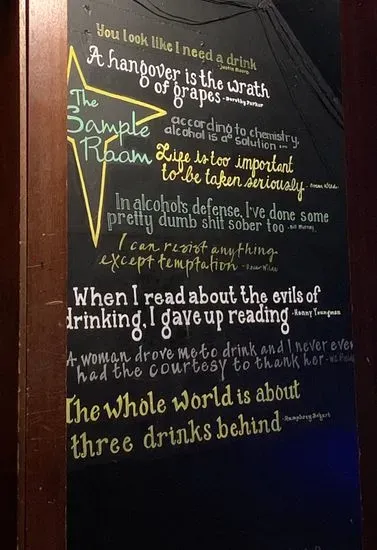 You look like I need a drink
- Justin Moore
A hangover is the wrath
of grapes - Dorothy Parker
The
Sample
Raam
according to chemistry,
alcohol is a solution
Life is too important
to be taken seriously - Oscar Wilde
In alcohols defense, I've done some
pretty dumb shit sober too - Bill Murray
I can resist anything
except temptation - Oscar Wilde
When I read about the evils of
drinking, I gave up reading - Henny Youngman
A woman drove me to drink and I never even
had the courtesy to thank her - WC Fields
The whole world is about
three drinks behind - Humphrey Bogart